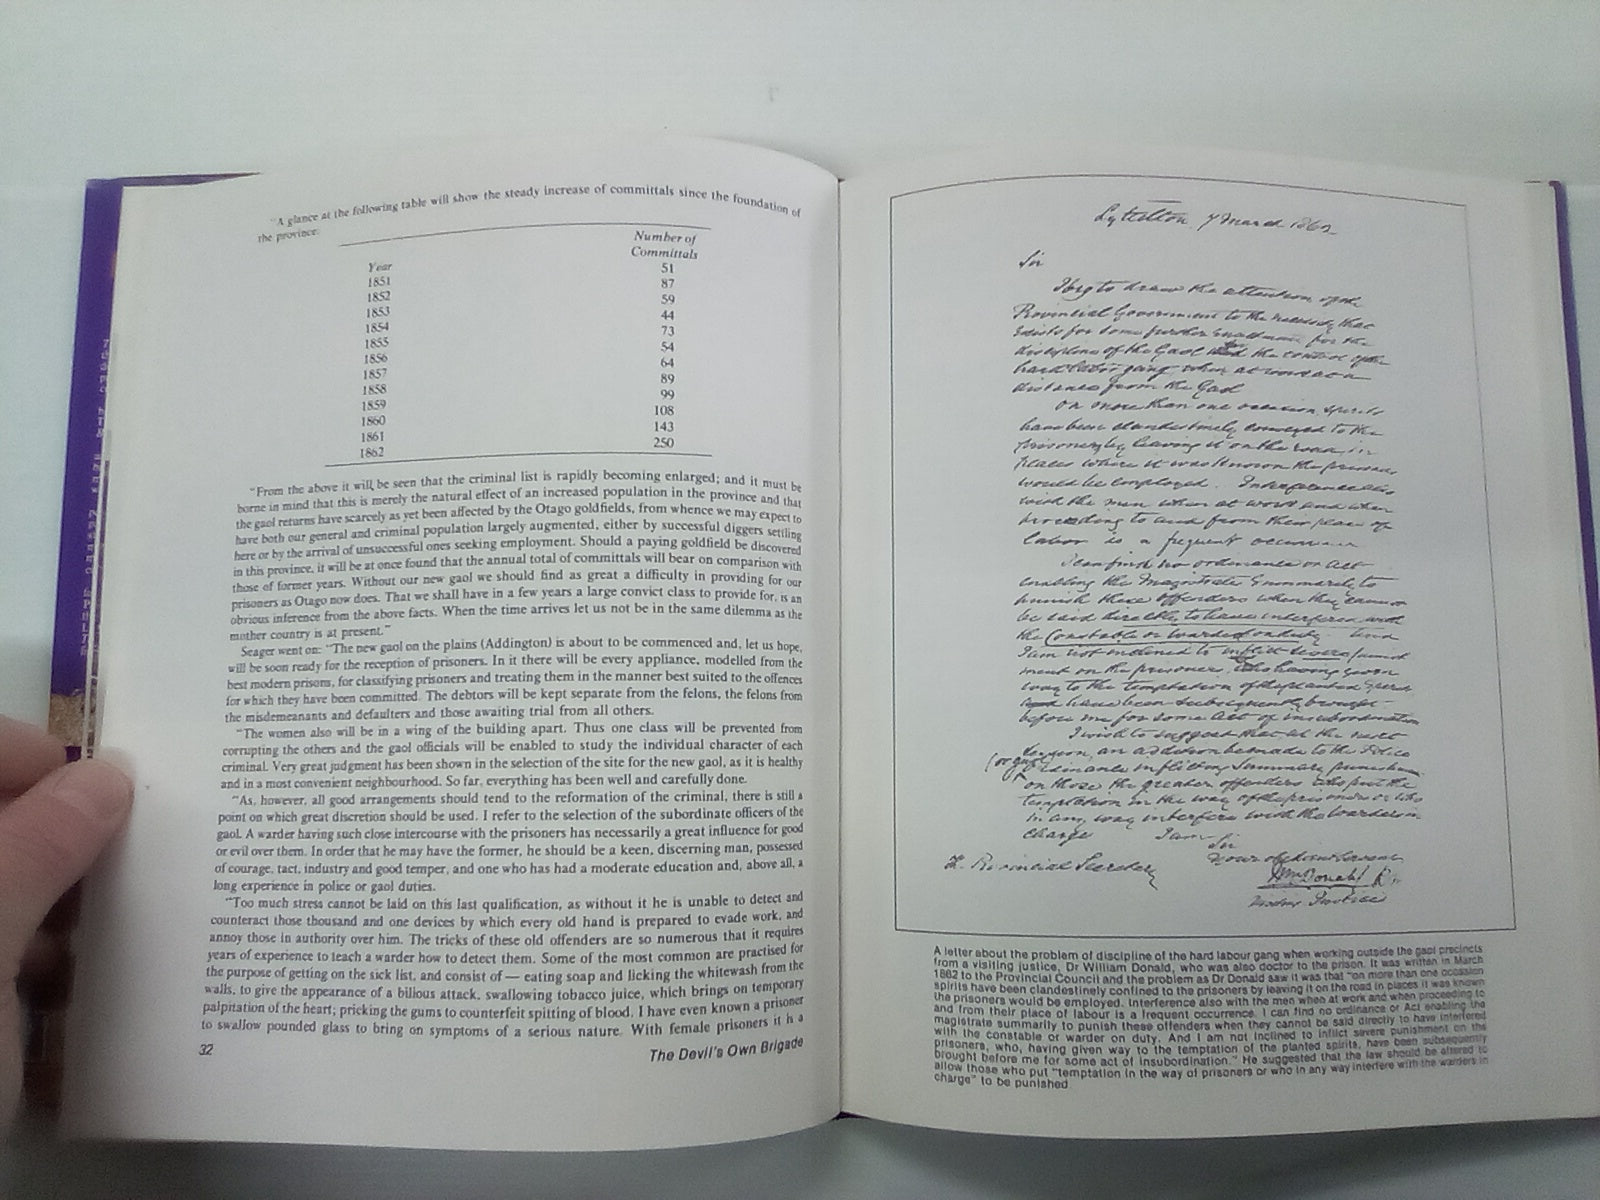 "A glance at the following table will show the steady increase of committals since the foundation of
the province:
Year Number of
Committals
1851 51
1852 87
1853 59
1854 44
1855 73
1856 54
1857 64
1858 89
1859 99
1860 108
1861 143
1862 250
"From the above it will be seen that the criminal list is rapidly becoming enlarged; and it must be
borne in mind that this is merely the natural effect of an increased population in the province and that
the gaol returns have scarcely as yet been affected by the Otago goldfields, from whence we may expect to
have both our general and criminal population largely augmented, either by successful diggers settling
here or by the arrival of unsuccessful ones seeking employment. Should a paying goldfield be discovered
in this province, it will be at once found that the annual total of committals will bear on comparison with
those of former years. Without our new gaol we should find as great a difficulty in providing for our
prisoners as Otago now does. That we shall have in a few years a large convict class to provide for, is an
obvious inference from the above facts. When the time arrives let us not be in the same dilemma as the
mother country is at present."
Seager went on: "The new gaol on the plains (Addington) is about to be commenced and, let us hope,
will be soon ready for the reception of prisoners. In it there will be every appliance, modelled from the
best modern prisons, for classifying prisoners and treating them in the manner best suited to the offences
for which they have been committed. The debtors will be kept separate from the felons, the felons from
the misdemeanants and defaulters and those awaiting trial from all others.
"The women also will be in a wing of the building apart. Thus one class will be prevented from
corrupting the others and the gaol officials will be enabled to study the individual character of each
criminal. Very great judgment has been shown in the selection of the site for the new gaol, as it is healthy
and in a most convenient neighbourhood. So far, everything has been well and carefully done.
"As, however, all good arrangements should tend to the reformation of the criminal, there is still a
point on which great discretion should be used. I refer to the selection of the subordinate officers of the
gaol. A warder having such close intercourse with the prisoners has necessarily a great influence for good
or evil over them. In order that he may have the former, he should be a keen, discerning man, possessed
of courage, tact, industry and good temper, and one who has had a moderate education and, above all, a
long experience in police or gaol duties.
"Too much stress cannot be laid on this last qualification, as without it he is unable to detect and
counteract those thousand and one devices by which every old hand is prepared to evade work, and
annoy those in authority over him. The tricks of these old offenders are so numerous that it requires
years of experience to teach a warder how to detect them. Some of the most common are practised for
the purpose of getting on the sick list, and consist of — eating soap and licking the whitewash from the
walls, to give the appearance of a bilious attack, swallowing tobacco juice, which brings on temporary
palpitation of the heart; pricking the gums to counterfeit spitting of blood. I have even known a prisoner
to swallow pounded glass to bring on symptoms of a serious nature. With female prisoners it is a
32
The Devil's Own Brigade
Lyttelton 7 March 1862
Sir
I beg to draw the attention of the
Provincial Government to the necessity that
exists for some further enactment for the
discipline of the Gaol and the control of the
hard labor gang when at work at a
distance from the Gaol
On more than one occasion spirits
have been clandestinely conveyed to the
prisoners by leaving it on the road in
places where it was known the prisoners
would be employed. Interference also
with the men when at work and when
proceeding to and from their place of
labor is a frequent occurrence
I can find no ordinance or Act
enabling the Magistrate summarily to
punish these offenders when they cannot
be said directly to have interfered with
the Constable or warder on duty. And
I am not inclined to inflict severe punish
ment on the prisoners, who having given
way to the temptation of the planted spirits
have been subsequently brought
before me for some act of insubordination
I wish to suggest that at the next
Session an addition be made to the Police
Ordinance inflicting summary punishment
on those the greater offenders who put the
temptation in the way of the prisoners or who
in any way interfere with the warders in
charge I am Sir
Your obedient Servant
Wm Donald
Visiting Justice
Provincial Secretary
A letter about the problem of discipline of the hard labour gang when working outside the gaol precincts
from a visiting justice, Dr William Donald, who was also doctor to the prison. It was written in March
1862 to the Provincial Council and the problem as Dr Donald saw it was that "on more than one occasion
spirits have been clandestinely confined to the prisoners by leaving it on the road in places it was known
the prisoners would be employed. Interference also with the men when at work and when proceeding to
and from their place of labour is a frequent occurrence. I can find no ordinance or Act enabling the
magistrate summarily to punish these offenders when they cannot be said directly to have interfered
with the constable or warder on duty. And I am not inclined to inflict severe punishment on the
prisoners, who, having given way to the temptation of the planted spirits, have been subsequently
brought before me for some act of insubordination." He suggested that the law should be altered to
allow those who put "temptation in the way of prisoners or who in any way interfere with the warders in
charge" to be punished.